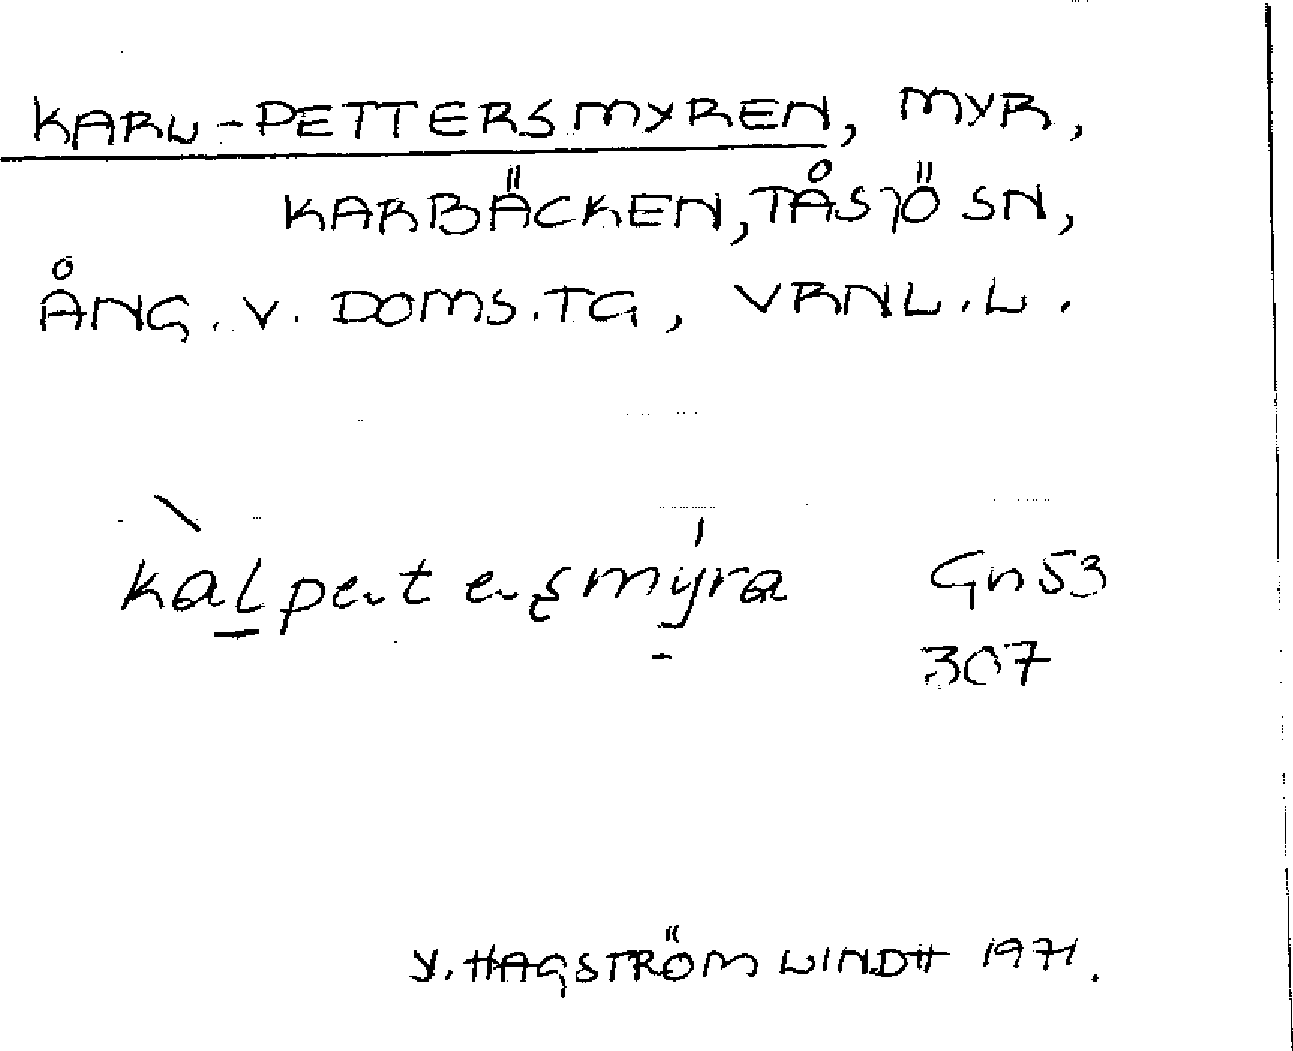 KARL-PETTERSMYREN, MYR,
KARBÄCKEN, TÅSJÖ SN,
ÅNG. V. DOMS.TG, VRNL.L.
kàlpetersmýra Gn53
307
Y. HAGSTRÖM LINDH 1971.